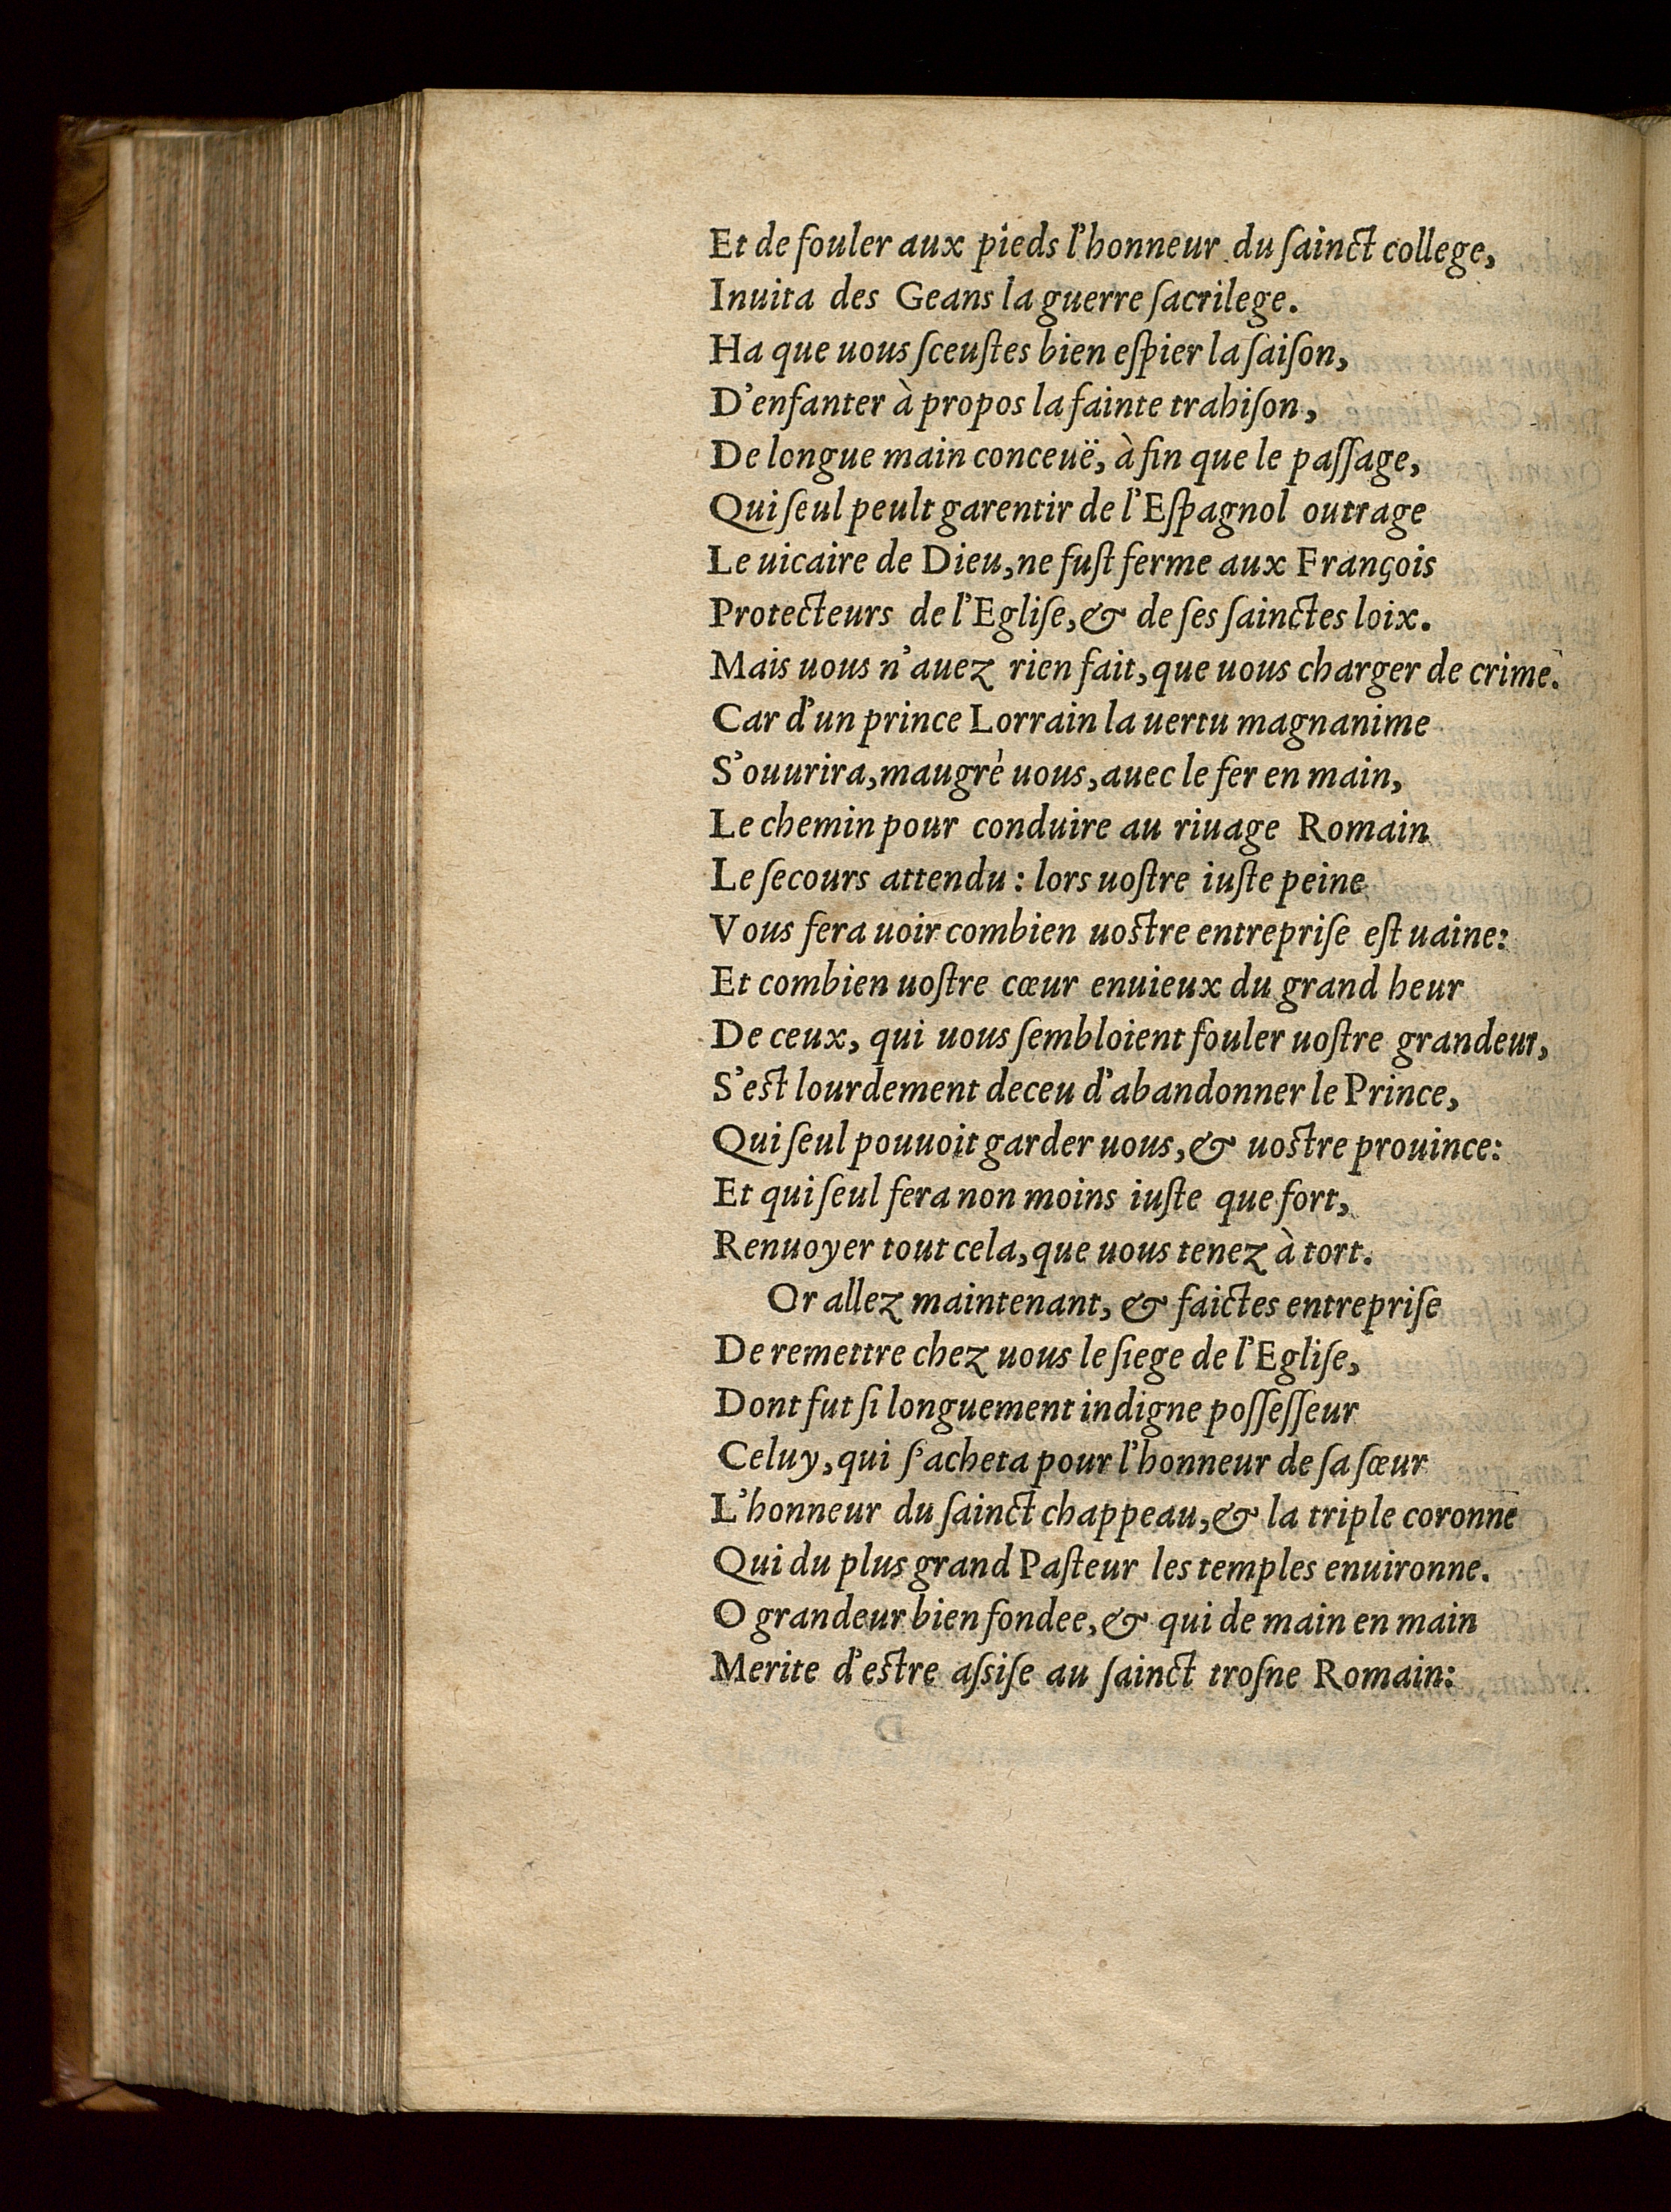 Et de fouler aux pieds l'honneur du ſainct college,
Inuita des Geans la guerre ſacrilege.
Ha que uous ſceuſtes bien eſpier la ſaiſon,
D'enfanter à propos la fainte trahiſon,
De longue main conceuë, à fin que le paſſage,
Qui ſeul peult garentir de l'Eſpagnol outrage
Le uicaire de Dieu, ne fuſt ferme aux François
Protecteurs de l'Egliſe, & de ſes ſainctes loix.
Mais uous n'auez rien fait, que uous charger de crime.
Car d'un prince Lorrain la uertu magnanime
S'ouurira, maugré uous, auec le fer en main,
Le chemin pour conduire au riuage Romain
Le ſecours attendu: lors uoſtre iuſte peine
Vous fera uoir combien uoſtre entrepriſe eſt uaine:
Et combien uoſtre cœur enuieux du grand heur
De ceux, qui uous ſembloient fouler uoſtre grandeur,
S'eſt lourdement deceu d'abandonner le Prince,
Qui ſeul pouuoit garder uous, & uoſtre prouince:
Et qui ſeul fera non moins iuſte que fort,
Renuoyer tout cela, que uous tenez à tort.
Or allez maintenant, & faictes entrepriſe
De remettre chez uous le ſiege de l'Egliſe,
Dont fut ſi longuement indigne poſſeſſeur
Celuy, qui ſ'acheta pour l'honneur de ſa ſœur
L'honneur du ſainct chappeau, & la triple coronne
Qui du plus grand Paſteur les temples enuironne.
O grandeur bien fondee, & qui de main en main
Merite d'eſtre aſsiſe au ſainct troſne Romain: